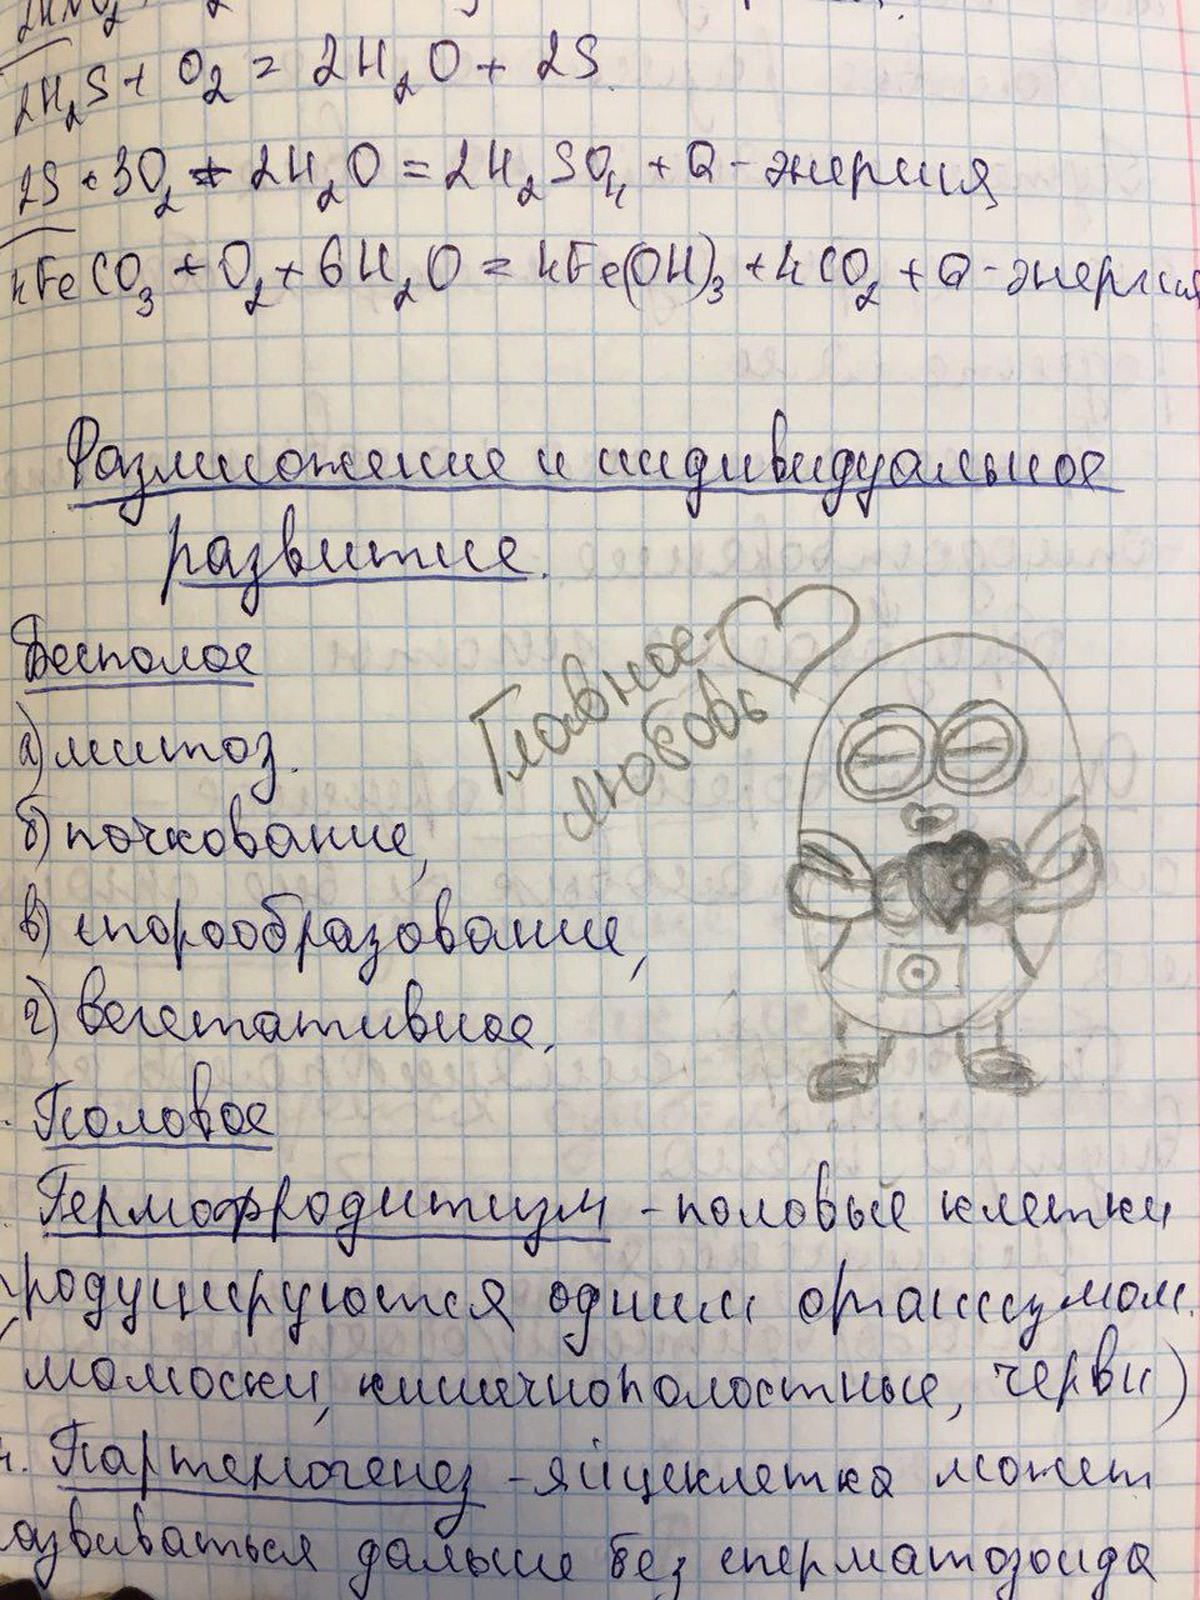 2H₂S + O₂ = 2H₂O + 2S.
2S + 3O₂ + 2H₂O = 2H₂SO₄ + Q - энергия,
4FeCO₃ + O₂ + 6H₂O = 4Fe(OH)₃ + 4CO₂ + Q - энергия
Размножение и индивидуальное
развитие.
Бесполое
а) митоз.
б) почкование,
в) спорообразование,
г) вегетативное,
Главное-
любовь
Половое
Гермофродитизм - половые клетки
продуцируются одним организмом.
(моллоски, кишечнополостные, черви)
4. Партеногенез - яйцеклетка может
развиваться дальше без сперматозоида